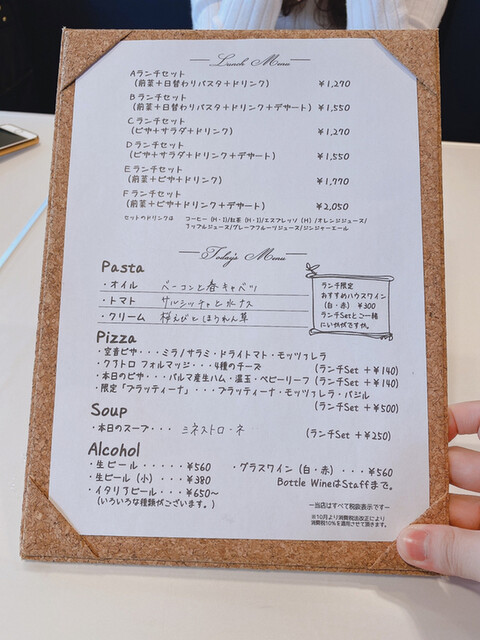 Lunch Menu
Aランチセット
(前菜+日替わりパスタ+ドリンク) ¥1,270
Bランチセット
(前菜+日替わりパスタ+ドリンク+デザート) ¥1,550
Cランチセット
(ピザ+サラダ+ドリンク) ¥1,270
Dランチセット
(ピザ+サラダ+ドリンク+デザート) ¥1,550
Eランチセット
(前菜+ピザ+ドリンク) ¥1,770
Fランチセット
(前菜+ピザ+ドリンク+デザート) ¥2,050
セットのドリンクは コーヒー(H・I)/紅茶(H・I)/エスプレッソ(H)/オレンジジュース/
アップルジュース/グレープフルーツジュース/ジンジャーエール
Today's Menu
Pasta
・オイル ベーコンと春キャベツ
・トマト サルシッチャと水ナス
・クリーム 桜えびとほうれん草
ランチ限定
おすすめハウスワイン
(白・赤) ¥300
ランチSetとご一緒
にいかがですか。
Pizza
・空音ピザ・・・ミラノサラミ・ドライトマト・モッツァレラ
・クアトロ フォルマッジ・・・4種のチーズ (ランチSet +¥140)
・本日のピザ・・・パルマ産生ハム・温玉・ベビーリーフ (ランチSet +¥140)
・限定「ブラッティーナ」・・・ブラッティーナ・モッツァレラ・バジル
(ランチSet +¥500)
Soup
・本日のスープ・・・ ミネストローネ (ランチSet +¥250)
Alcohol
・生ビール・・・・・¥560 ・グラスワイン(白・赤)・・・¥560
・生ビール(小)・・・¥380 Bottle WineはStaffまで。
・イタリアビール・・・¥650~
(いろいろな種類がございます。)
ー当店はすべて税抜表示ですー
※10月より消費税法改正により
消費税10%を適用させて頂きます。